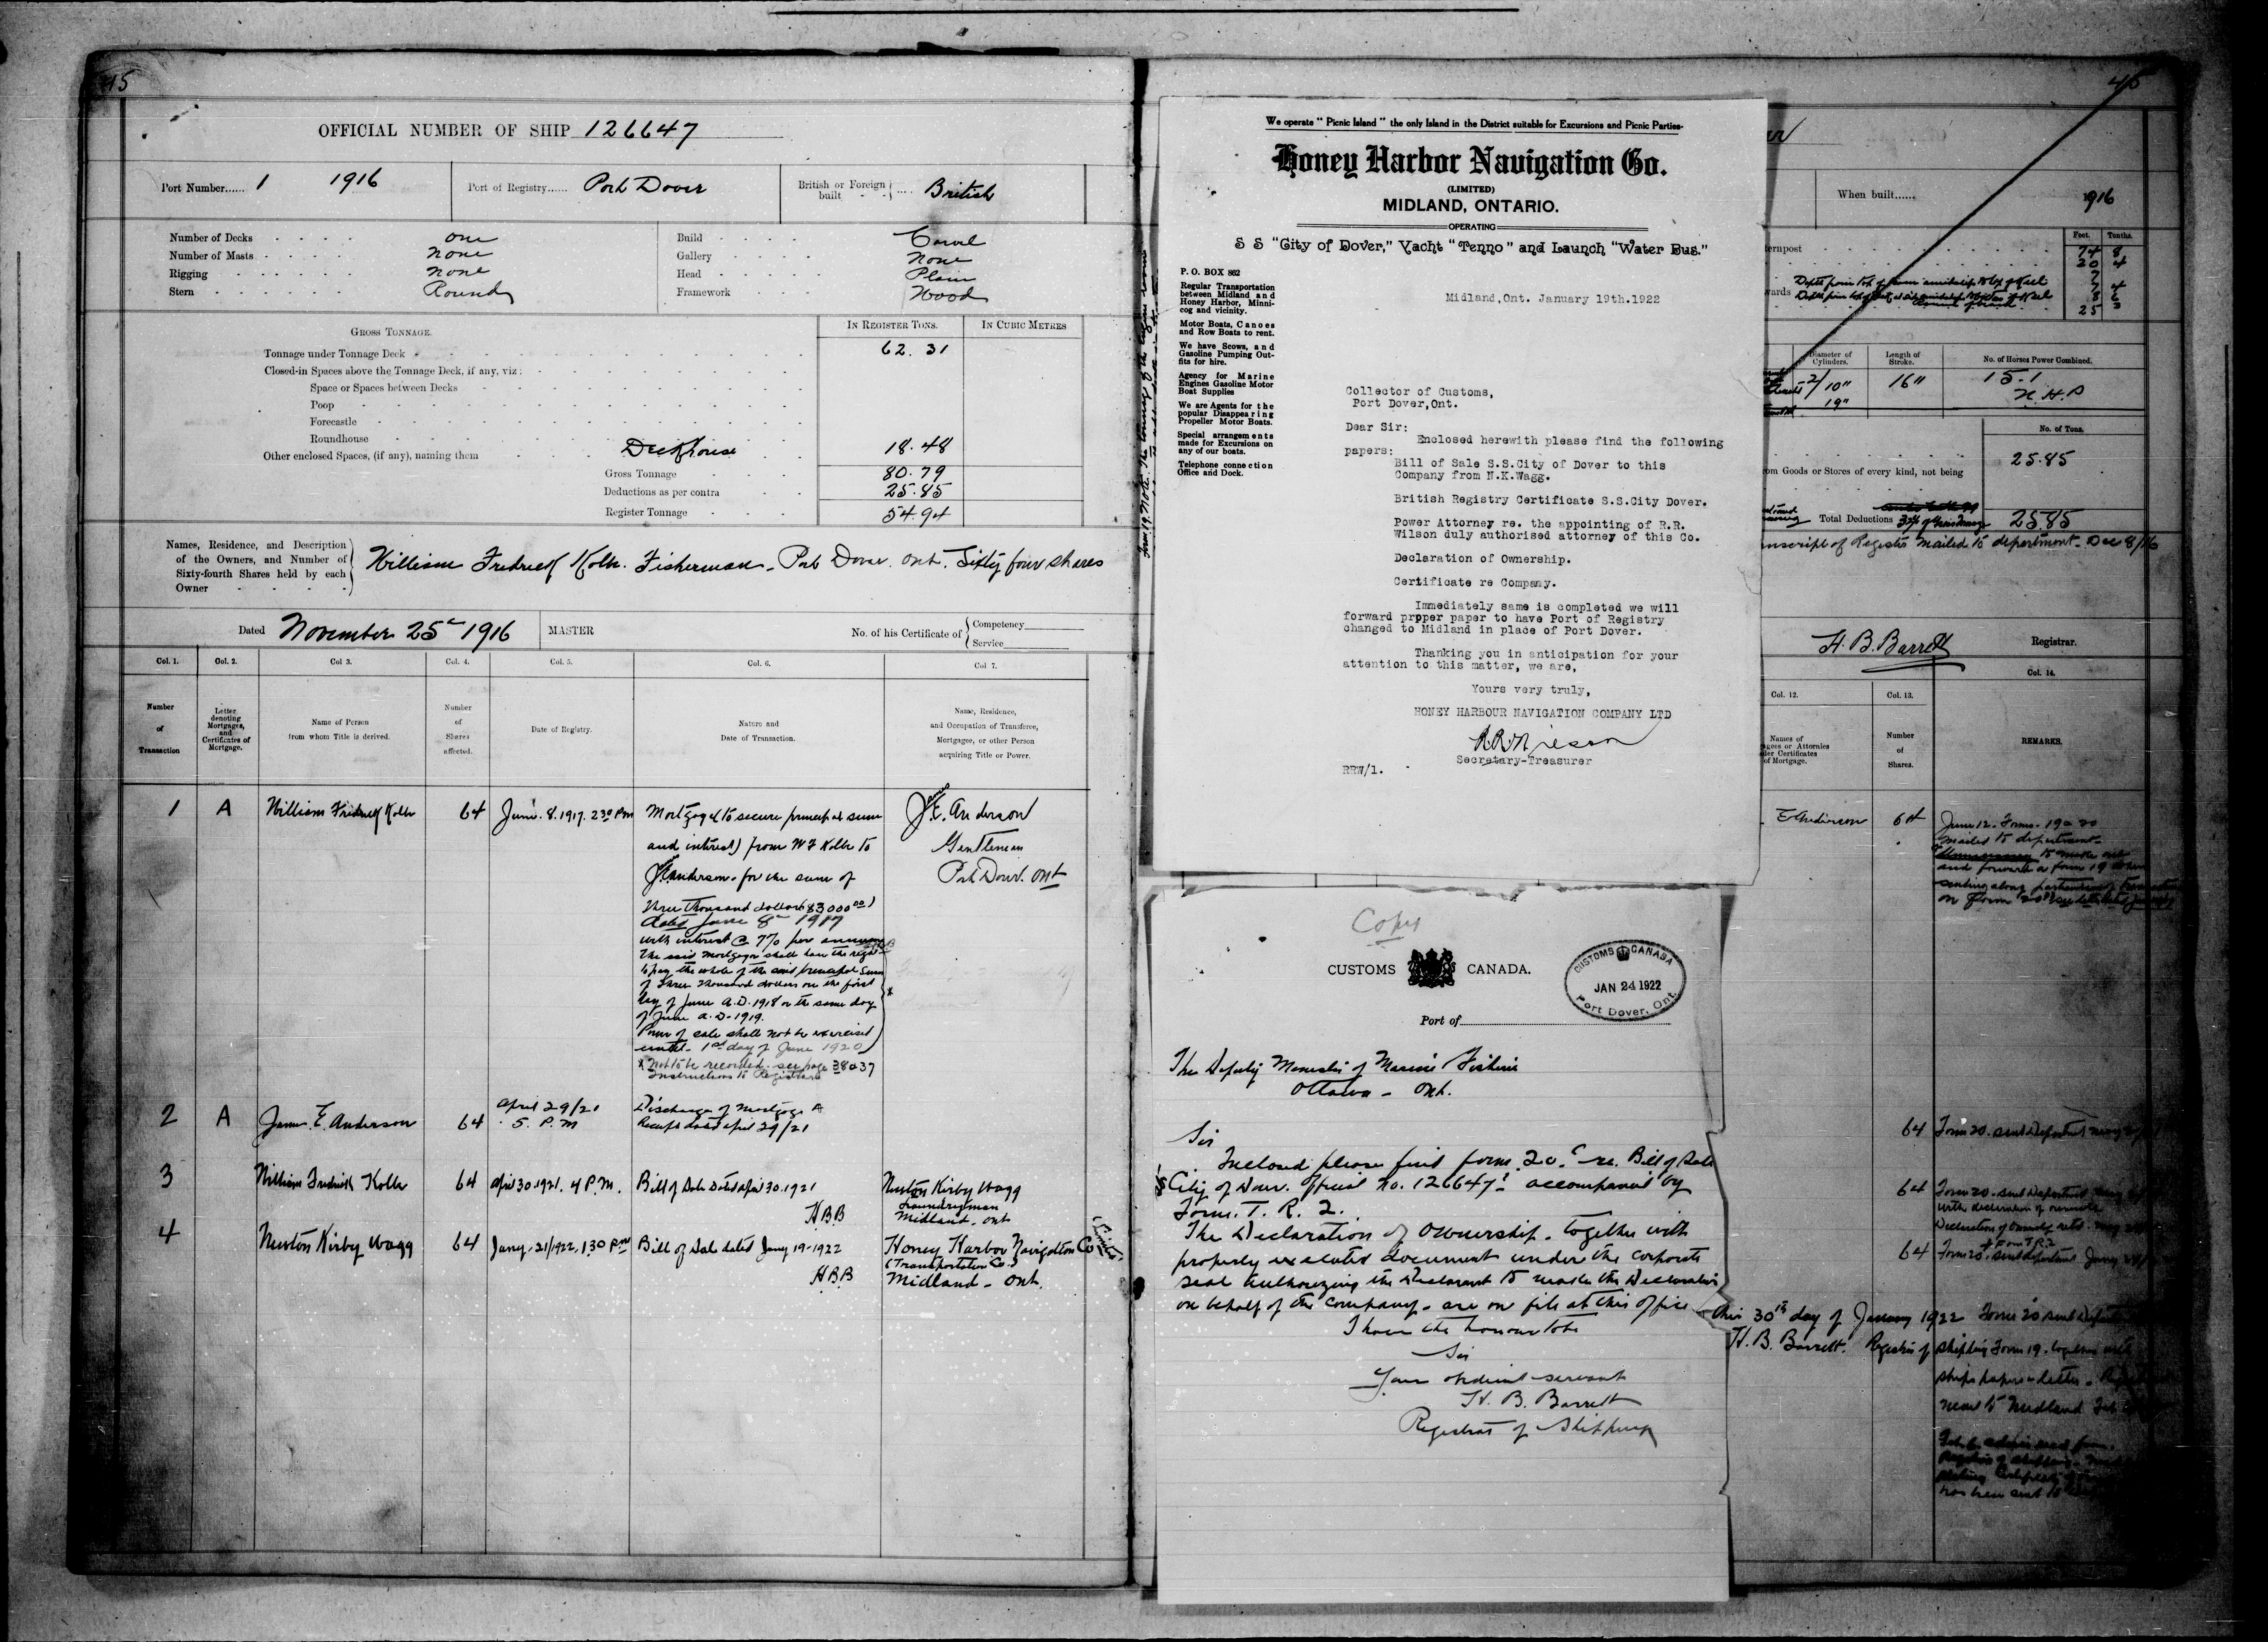 45
OFFICIAL NUMBER OF SHIP 126647
Port Number...... 1 1916
Port of Registry...... Port Dover
British or Foreign built .... British
Number of Decks One
Number of Masts None
Rigging None
Stern Round
Build Carvel
Gallery None
Head Plain
Framework Wood
GROSS TONNAGE.
IN REGISTER TONS.
IN CUBIC METRES
Tonnage under Tonnage Deck 62.31
Closed-in Spaces above the Tonnage Deck, if any, viz:
Space or Spaces between Decks
Poop
Forecastle
Roundhouse
Other enclosed Spaces, (if any), naming them Deckhouse 18.48
Gross Tonnage 80.79
Deductions as per contra 25.85
Register Tonnage 54.94
Names, Residence, and Description
of the Owners, and Number of
Sixty-fourth Shares held by each
Owner
William Fredrick Kolbe. Fisherman. Port Dover. Ont. Sixty four shares
Dated November 25th 1916
MASTER
No. of his Certificate of
Competency
Service
Col. 1.
Col. 2.
Col 3.
Col. 4.
Col. 5.
Col. 6.
Col 7.
Number
of
Transaction
Letter
denoting
Mortgages,
and
Certificates of
Mortgage.
Name of Person
from whom Title is derived.
Number
of
Shares
affected.
Date of Registry.
Nature and
Date of Transaction.
Name, Residence,
and Occupation of Transferee,
Mortgagee, or other Person
acquiring Title or Power.
1 A William Fredrick Kolbe 64 June. 8. 1917. 2.30 PM
Mortgage (to secure principal sum
and interest) from W F Kolbe to
James E. Anderson. for the sum of
Three thousand dollars ($3000.00)
dated June 8th 1917
with interest @ 7% per annum
The said mortgagor shall have the right
to pay the whole of the said principal sum
of three thousand dollars on the first
day of June A.D. 1918 or the same day
of June A.D. 1919.
Power of sale shall not be exercised
until 1st day of June 1920
x Not to be recorded. see page 38 & 37
Instructions to Registrars
James
J. E. Anderson
Gentleman
Port Dover. Ont
2 A James. E. Anderson 64 April 29/21
5. P.M
Discharge of Mortgage A
Receipt dated April 29/21
3 William Fredrick Kolbe 64 April 30. 1921. 4 P.M. Bill of Sale Dated April 30. 1921
HBB
Newton Kirby Wagg
Laundryman
Midland. Ont
4 Newton Kirby Wagg 64 Jany. 21/1922. 1.30 PM Bill of Sale dated Jany 19-1922
HBB
Honey Harbor Navigation Co (Limited)
(Transportation Co.)
Midland - Ont.
We operate "Picnic Island" the only Island in the District suitable for Excursions and Picnic Parties.
Honey Harbor Navigation Co.
(LIMITED)
MIDLAND, ONTARIO.
OPERATING
S S "City of Dover," Yacht "Tenno" and Launch "Water Bus."
P. O. BOX 862
Regular Transportation
between Midland and
Honey Harbor, Minni-
cog and vicinity.
Motor Boats, Canoes
and Row Boats to rent.
We have Scows, and
Gasoline Pumping Out-
fits for hire.
Agency for Marine
Engines Gasoline Motor
Boat Supplies
We are Agents for the
popular Disappearing
Propeller Motor Boats.
Special arrangements
made for Excursions on
any of our boats.
Telephone connection
Office and Dock.
Midland,Ont. January 19th.1922
Collector of Customs,
Port Dover,Ont.
Dear Sir:
Enclosed herewith please find the following
papers:
Bill of Sale S.S.City of Dover to this
Company from N.K.Wagg.
British Registry Certificate S.S.City Dover.
Power Attorney re. the appointing of R.R.
Wilson duly authorised attorney of this Co.
Declaration of Ownership.
Certificate re Company.
Immediately same is completed we will
forward prpper paper to have Port of Registry
changed to Midland in place of Port Dover.
Thanking you in anticipation for your
attention to this matter, we are,
Yours very truly,
HONEY HARBOUR NAVIGATION COMPANY LTD
R.R. Wilson
Secretary-Treasurer
RRW/1.
Copy
CUSTOMS CANADA.
CUSTOMS CANADA
JAN 24 1922
Port Dover, Ont.
Port of
The Deputy Minister of Marine Fisheries
Ottawa - Ont.
Sir
Inclosed please find form 20. re. Bill of Sale
City of Dover. Official no. 126647 accompanied by
Form. T. R. 2.
The Declaration of Ownership. together with
properly executed document under the corporate
seal authorizing the Declarant to make the Declaration
on behalf of the company. are on file at this office
I have the honour to be
Sir
Your obedient servant
H. B. Barrett
Registrar of Shipping
45
When built...... 1916
Feet. Tenths.
ternpost 74 8
20 4
7
7 4
8 6
25 3
Diameter of
Cylinders.
Length of
Stroke.
No. of Horses Power Combined.
2/10"
19"
16"
15.1
N.H.P
No. of Tons.
25.85
om Goods or Stores of every kind, not being
Total Deductions 25.85
nscript of Register mailed to department. Dec 8/16
H. B. Barrett Registrar.
Col. 12.
Col. 13.
Col. 14.
Names of
agees or Attornies
der Certificates
of Mortgage.
Number
of
Shares.
REMARKS.
E Anderson 64 June 12. Forms. 19 & 20
mailed to department
and forward a form 19 when
on form 20
64 Form 20. sent Department
64 Form 20. sent Department
with declaration of ownership
Declaration of Ownership retd.
& Form T R 2
64 Form 20. sent department Jany
this 30th day of January 1922 Form 20 sent
H. B. Barrett. Registrar of Shipping Form 19. together with
ships papers & letter
sent to Midland Feb